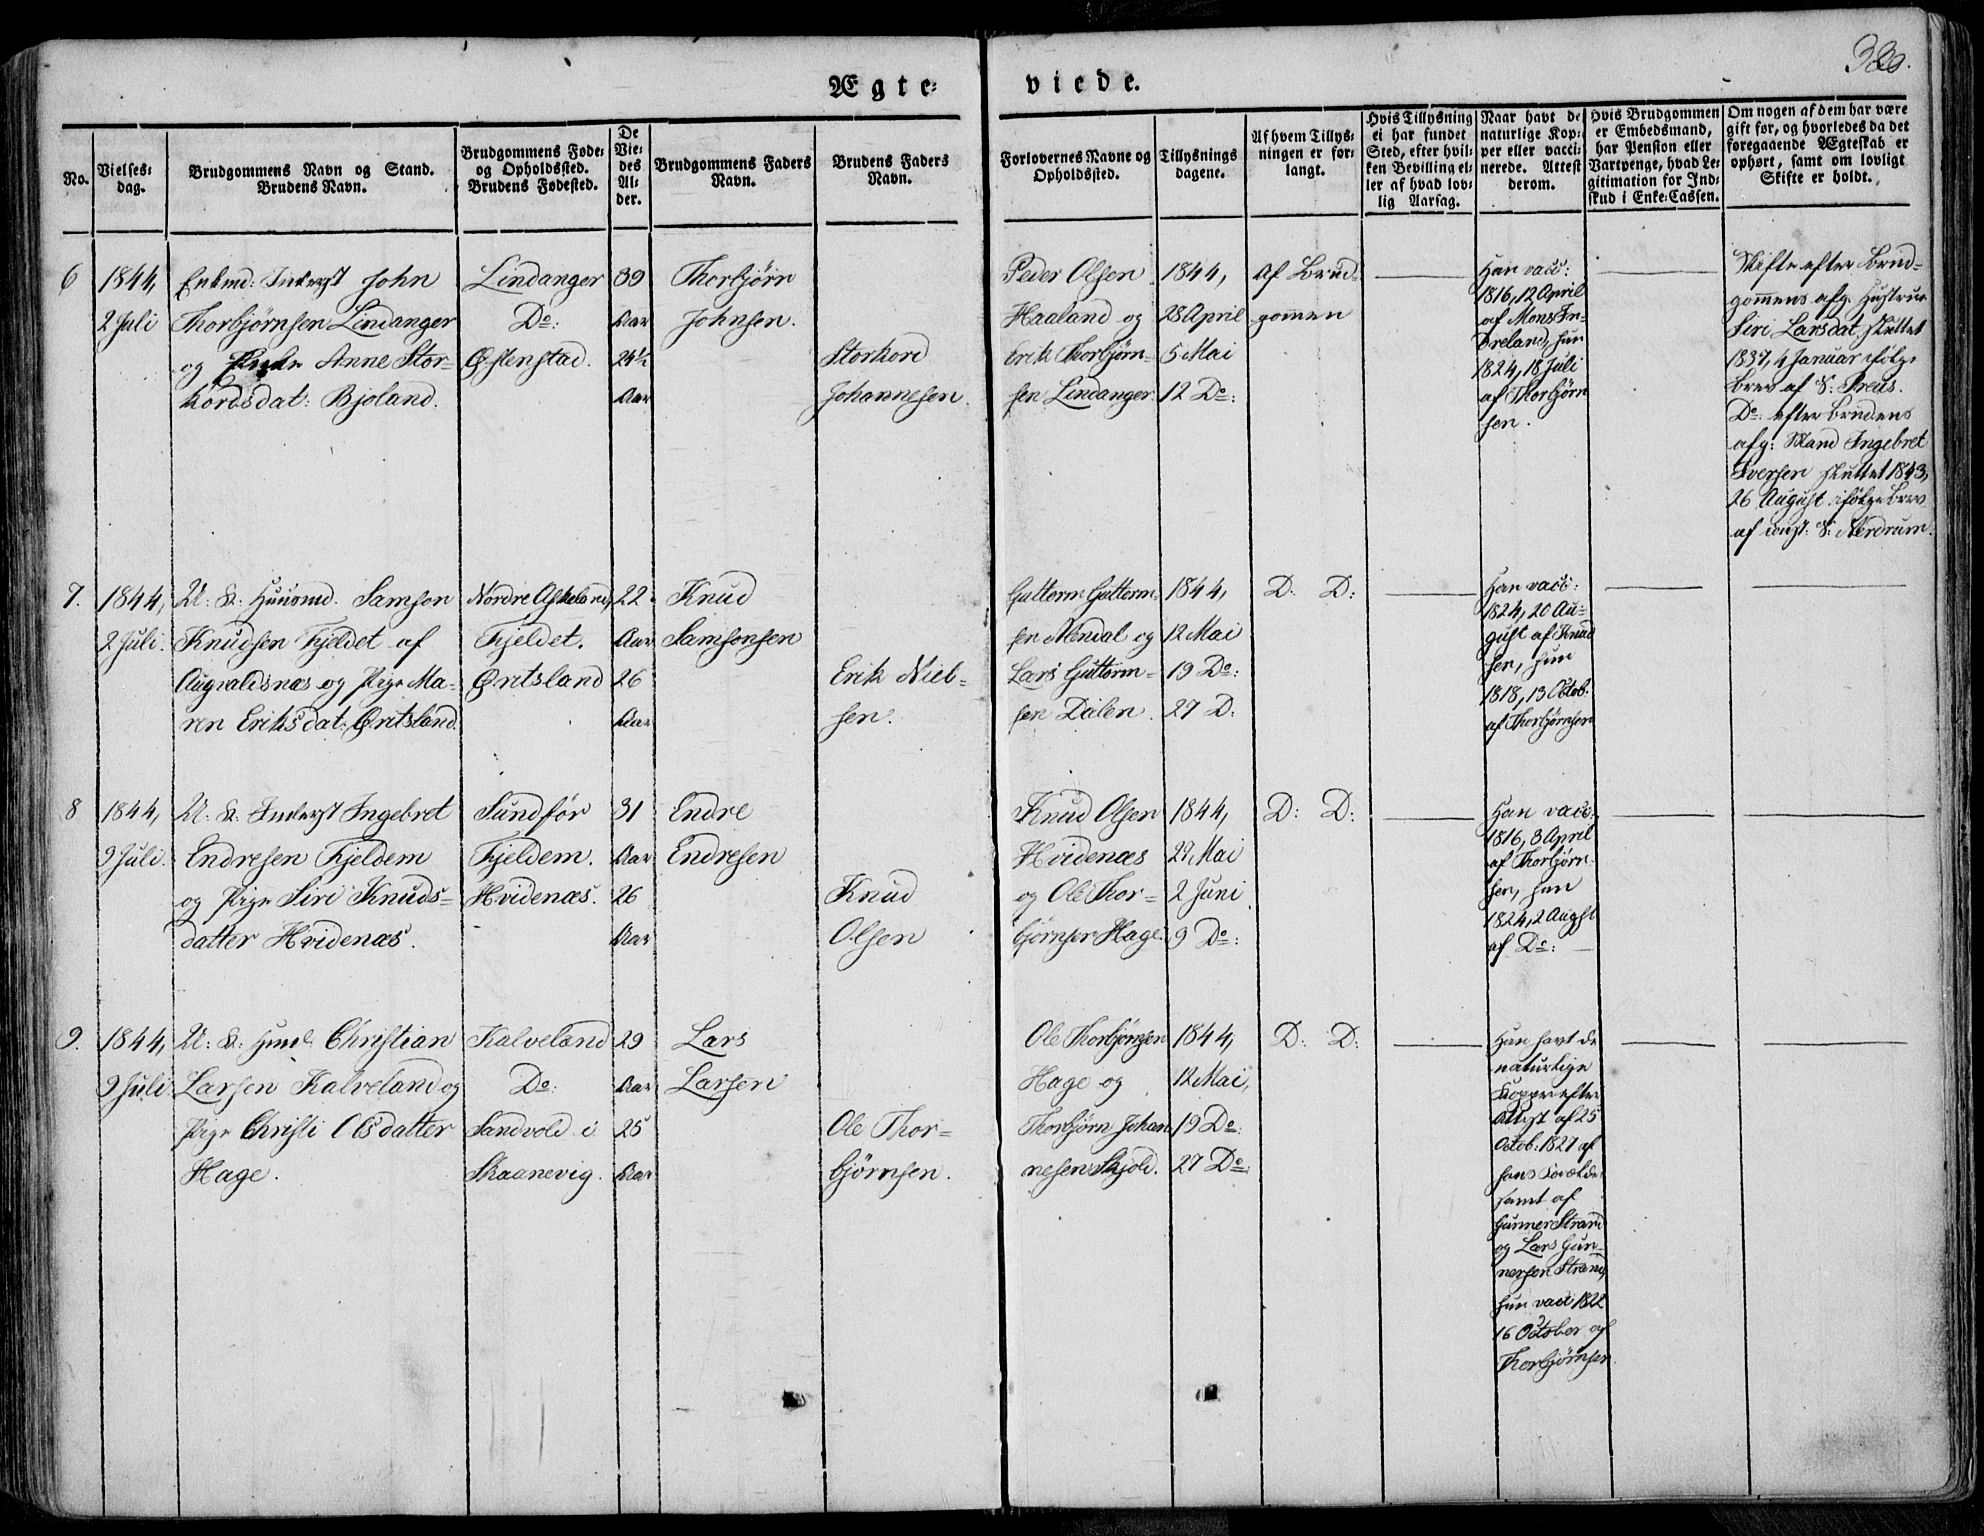 380.
Ægte= viede.
No.
Vielses=
dag.
Brudgommens Navn og Stand.
Brudens Navn.
Brudgommens Føde=
og Opholdssted.
Brudens Fødested.
De
Vie=
des
Al=
der.
Brudgommens Faders
Navn.
Brudens Faders
Navn.
Forlovernes Navne og
Opholdssted.
Tillysnings
dagene.
Af hvem Tillys=
ningen er for=
langt.
Hvis Tillysning
ei har fundet
Sted, efter hvil=
ken Bevilling el=
ler af hvad lov=
lig Aarsag.
Naar havt de
naturlige Kop=
per eller vacci=
nerede. Attest
derom.
Hvis Brudgommen
er Embedsmand,
har Pension eller
Vartpenge, hvad Le=
gitimation for Ind=
skud i Enke=Cassen.
Om nogen af dem har være
gift før, og hvorledes da det
foregaaende Ægteskab er
ophørt, samt om lovligt
Skifte er holdt.
6
1844,
2 Juli
Enkmd: Inderst John
Thorbjørnsen Lindanger
og Enke Anne Stor=
kordsdat: Bjoland.
Lindanger
Do:
Østenstad.
39
Aar
24½
Aar
Thorbjørn
Johnsen.
Storkord
Johannesen.
Peder Olsen
Haaland og
Erik Thorbjørn=
sen Lindanger
1844,
28 April
5 Mai
12 Do:
Af Brud=
gomen
Han vacc:
1816, 12 April
af Mons In=
dreland, hun
1824, 18 Juli
af Thorbjørn
sen.
Skifte efter Brud=
gommens afg. Hustrue
Siri Larsdat, sluttet
1837, 4 Januar ifølge
brev af S: Preus.
Do: efter Brudens
afg: Mand Ingebret
Iversen sluttet 1843,
26 August ifølge brev
af const: S: Nerdrum.
7.
1844,
2 Juli.
U: K: Huusmd. Samson
Knudsen Fjeldet af
Augvaldsnæs og Pige Ma=
ren Eriksdat: Øritsland.
Nordre Askeland,
Fjeldet.
Øritsland
22
Aar
26
Aar
Knud
Samsonsen
Erik Niel=
sen.
Guttorm Guttorm
sen Mendal og
Lars Guttorm=
sen Dalen.
1844,
12 Mai
19 Do:
27 D:
D: D:
Han vacc:
1824, 20 Au=
gust af Knud
sen, hun
1818, 13 Octob.
af Thorbjørnsen
8
1844,
9 Juli.
U: K: Inderst Ingebret
Endresen Fjeldem
og Pige Siri Knuds=
datter Hvidenæs.
Sundfør
Fjeldem.
Hvidenæs.
31
Aar
26
Aar
Endre
Endresen
Knud
Olsen
Knud Olsen
Hvidenæs
og Ole Thor=
bjørnsen Hage.
1844,
27 Mai
2 Juni
9 Do:
D: D:
Han vacc.
1816, 3 April
af Thorbjørn
sen, hun
1824, 2 Augst
af Do:
9.
1844,
9 Juli
U: K: Huusm. Christian
Larsen Kalveland og
Pige Christi Olsdatter
Hage.
Kalveland
Do:
Sandvold i
Skaanevig.
29
Aar
25
Aar
Lars
Larsen
Ole Thor=
bjørnsen.
Ole Thorbjørnsen
Hage og
Thorbjørn Johan
nesen Skjold.
1844,
12 Mai,
19 Do:
27 Do:
D: D:
Han havt de
naturlige
Kopper efter
Attest af 25
Octob: 1827 af
hans Forældre
samt af
Gunner Strand
og Lars Gun=
nersen Strand,
hun vacc 1822
16 October af
Thorbjørnsen.